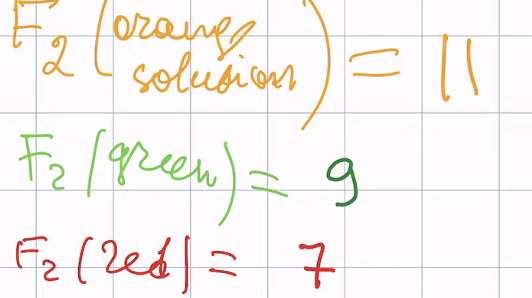 F2 (orange
solution) = 11
F2 (green) = 9
F2 (red) = 7